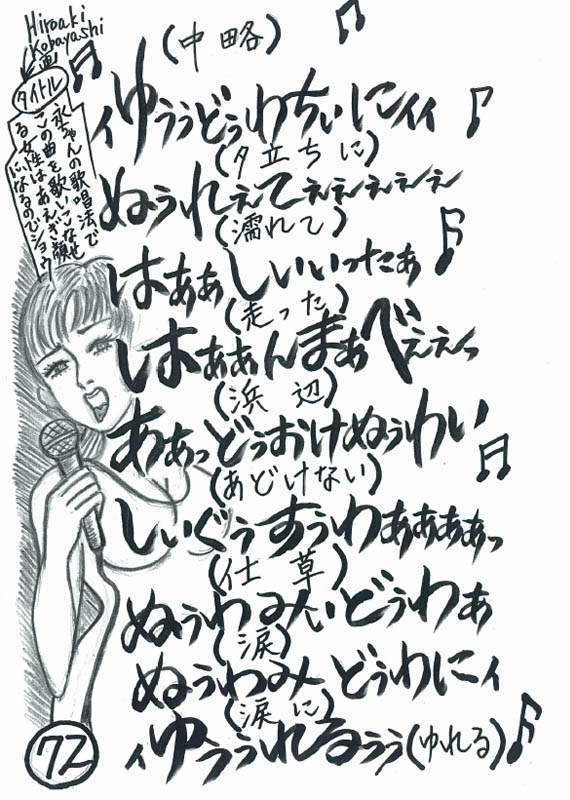 Hiroaki
Kobayashi
画!
タイトル
永ちゃんの歌唱法で
この曲を歌いこなせ
る女性はあえぎ顔
になるのでショウ
(中略)
ィゆぅぅどぅわちぃにィィ
(夕立ちに)
ぬぅれぇてぇぇぇぇぇ
(濡れて)
はぁぁしぃぃったぁ
(走った)
はぁぁんまぁべぇぇっ
(浜辺)
あぁっどぅおけぬぅわい
(あどけない)
しぃぐぅすぅわぁぁぁぁっ
(仕草)
ぬぅわみぃどぅわぁ
(涙)
ぬぅわみーどぅわにィ
(涙に)
ィゆぅぅれるぅぅ(ゆれる)
72